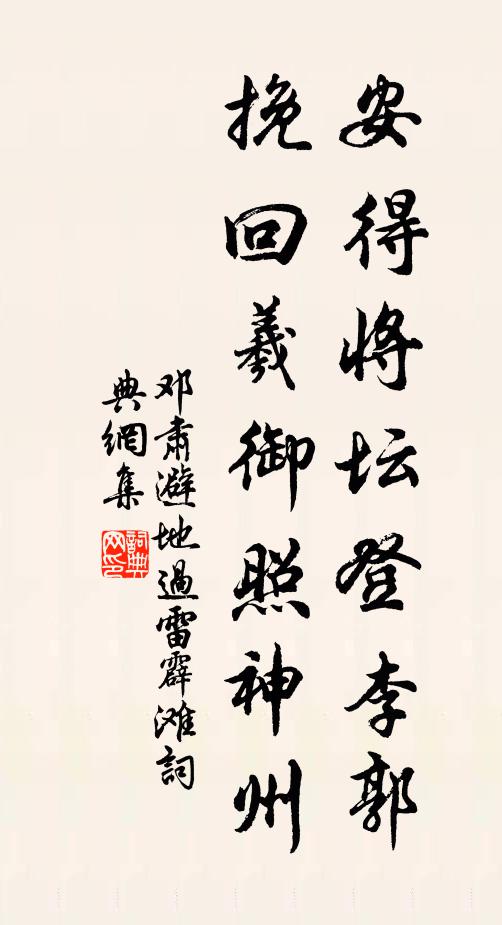 安得将坛登李郭
挽回羲御照神州
邓肃避地過雷霹滩詞
典網集
詞典网印